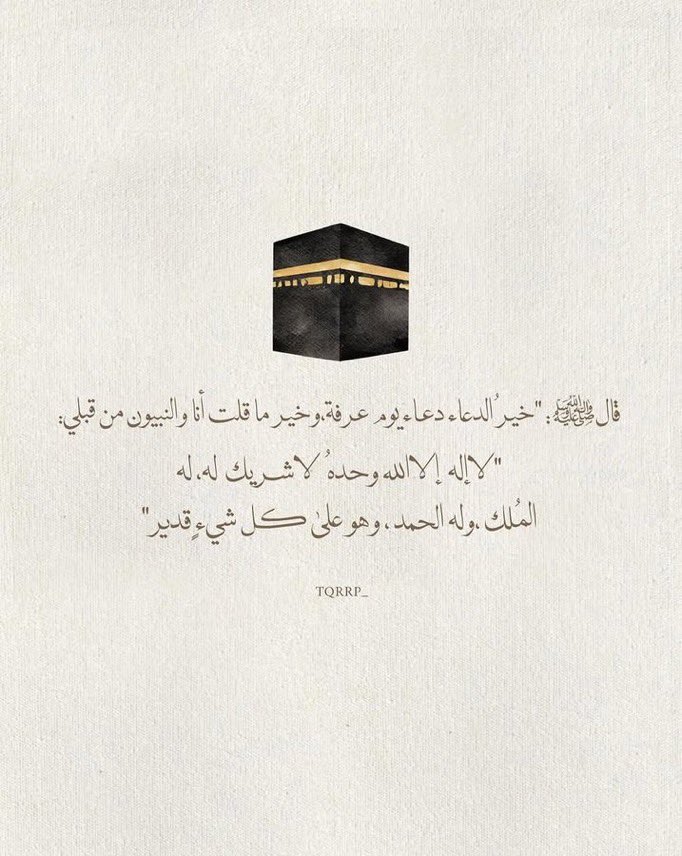 قال ﷺ: "خيرُ الدعاء دعاء يوم عرفة، وخير ما قلت أنا والنبيون من قبلي:
"لا إله إلا الله وحدهُ لا شريك له، له
المُلك ،وله الحمد، وهو على كل شيءٍ قدير"
TQRRP_